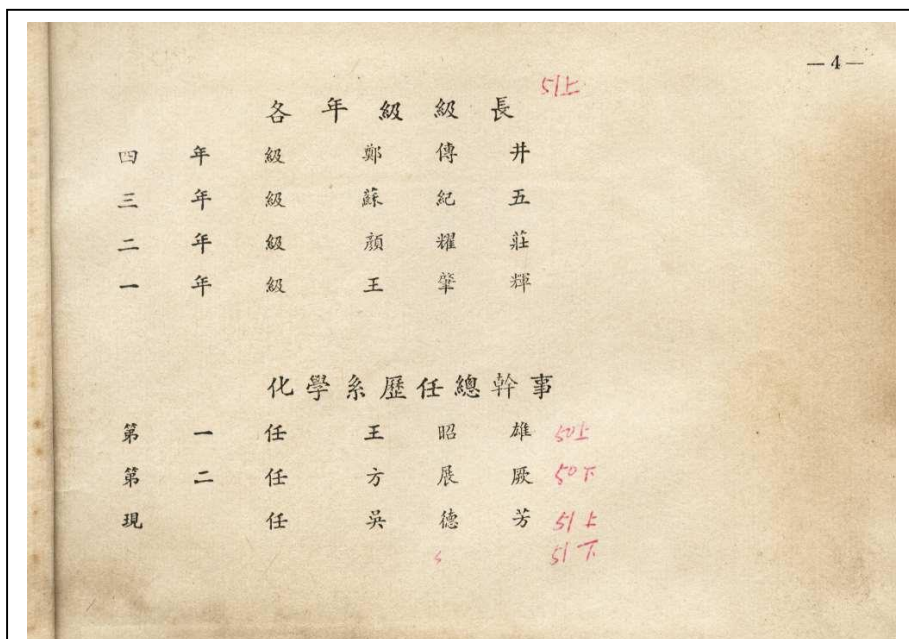 —4—
各年級級長 51上
四年級 鄭傳井
三年級 蘇紀五
二年級 顏耀莊
一年級 王肇輝
化學系歷任總幹事
第一任 王昭雄 50上
第二任 方展厥 50下
現任 吳德芳 51上
51下